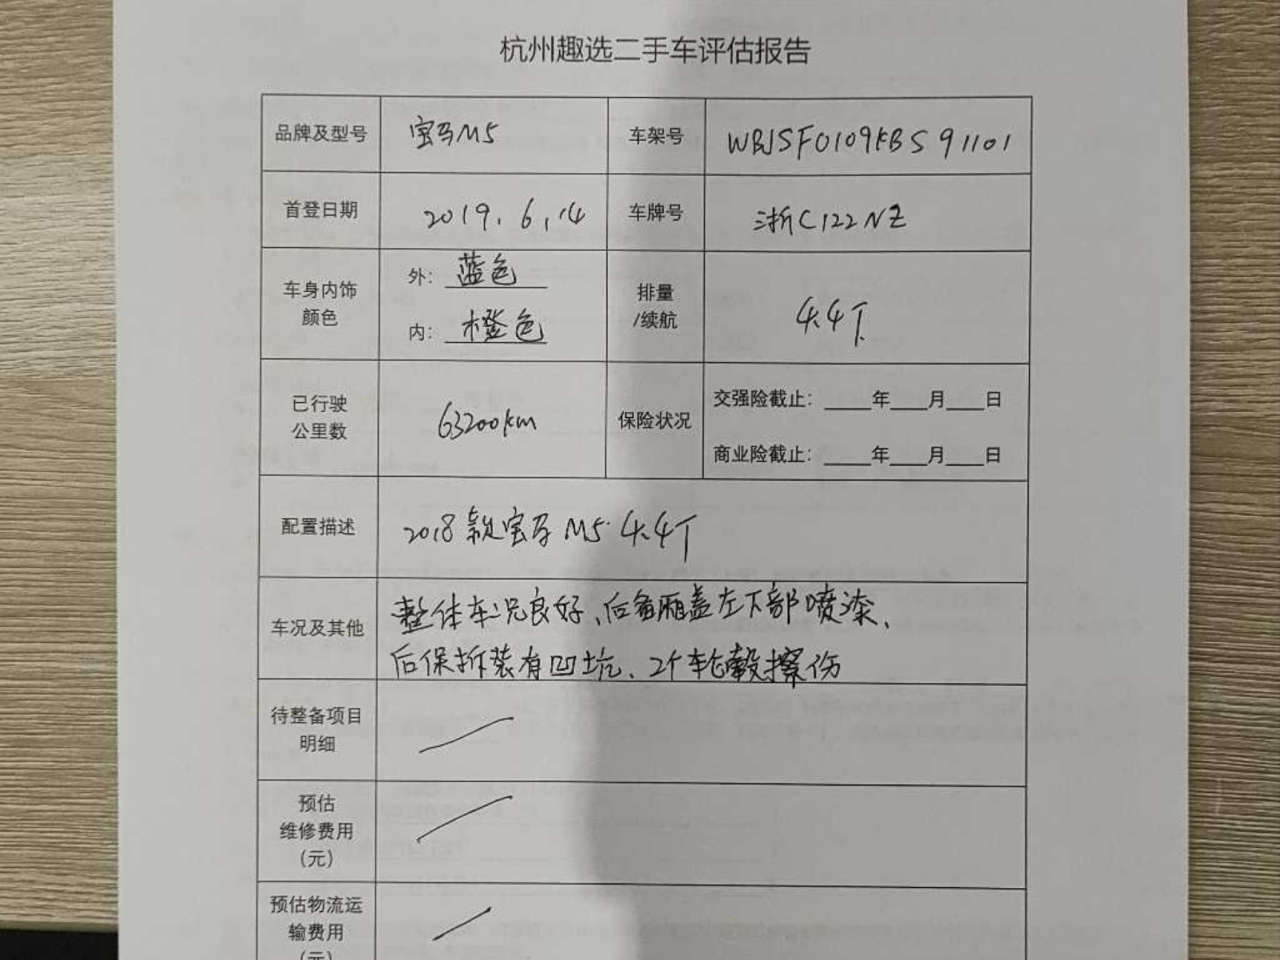 杭州趣选二手车评估报告
品牌及型号 宝马M5 车架号 WBJSF0109KBS91101
首登日期 2019.6.14 车牌号 浙C122NZ
车身内饰
颜色
外: 蓝色
内: 橙色
排量
/续航
4.4T
已行驶
公里数
63200km
保险状况
交强险截止: ____年___月___日
商业险截止: ____年___月___日
配置描述 2018款宝马M5 4.4T
车况及其他
整体车况良好、后备厢盖左下部喷漆、
后保拆装有凹坑、2个轮毂擦伤
待整备项目
明细
预估
维修费用
(元)
预估物流运
输费用
(元)